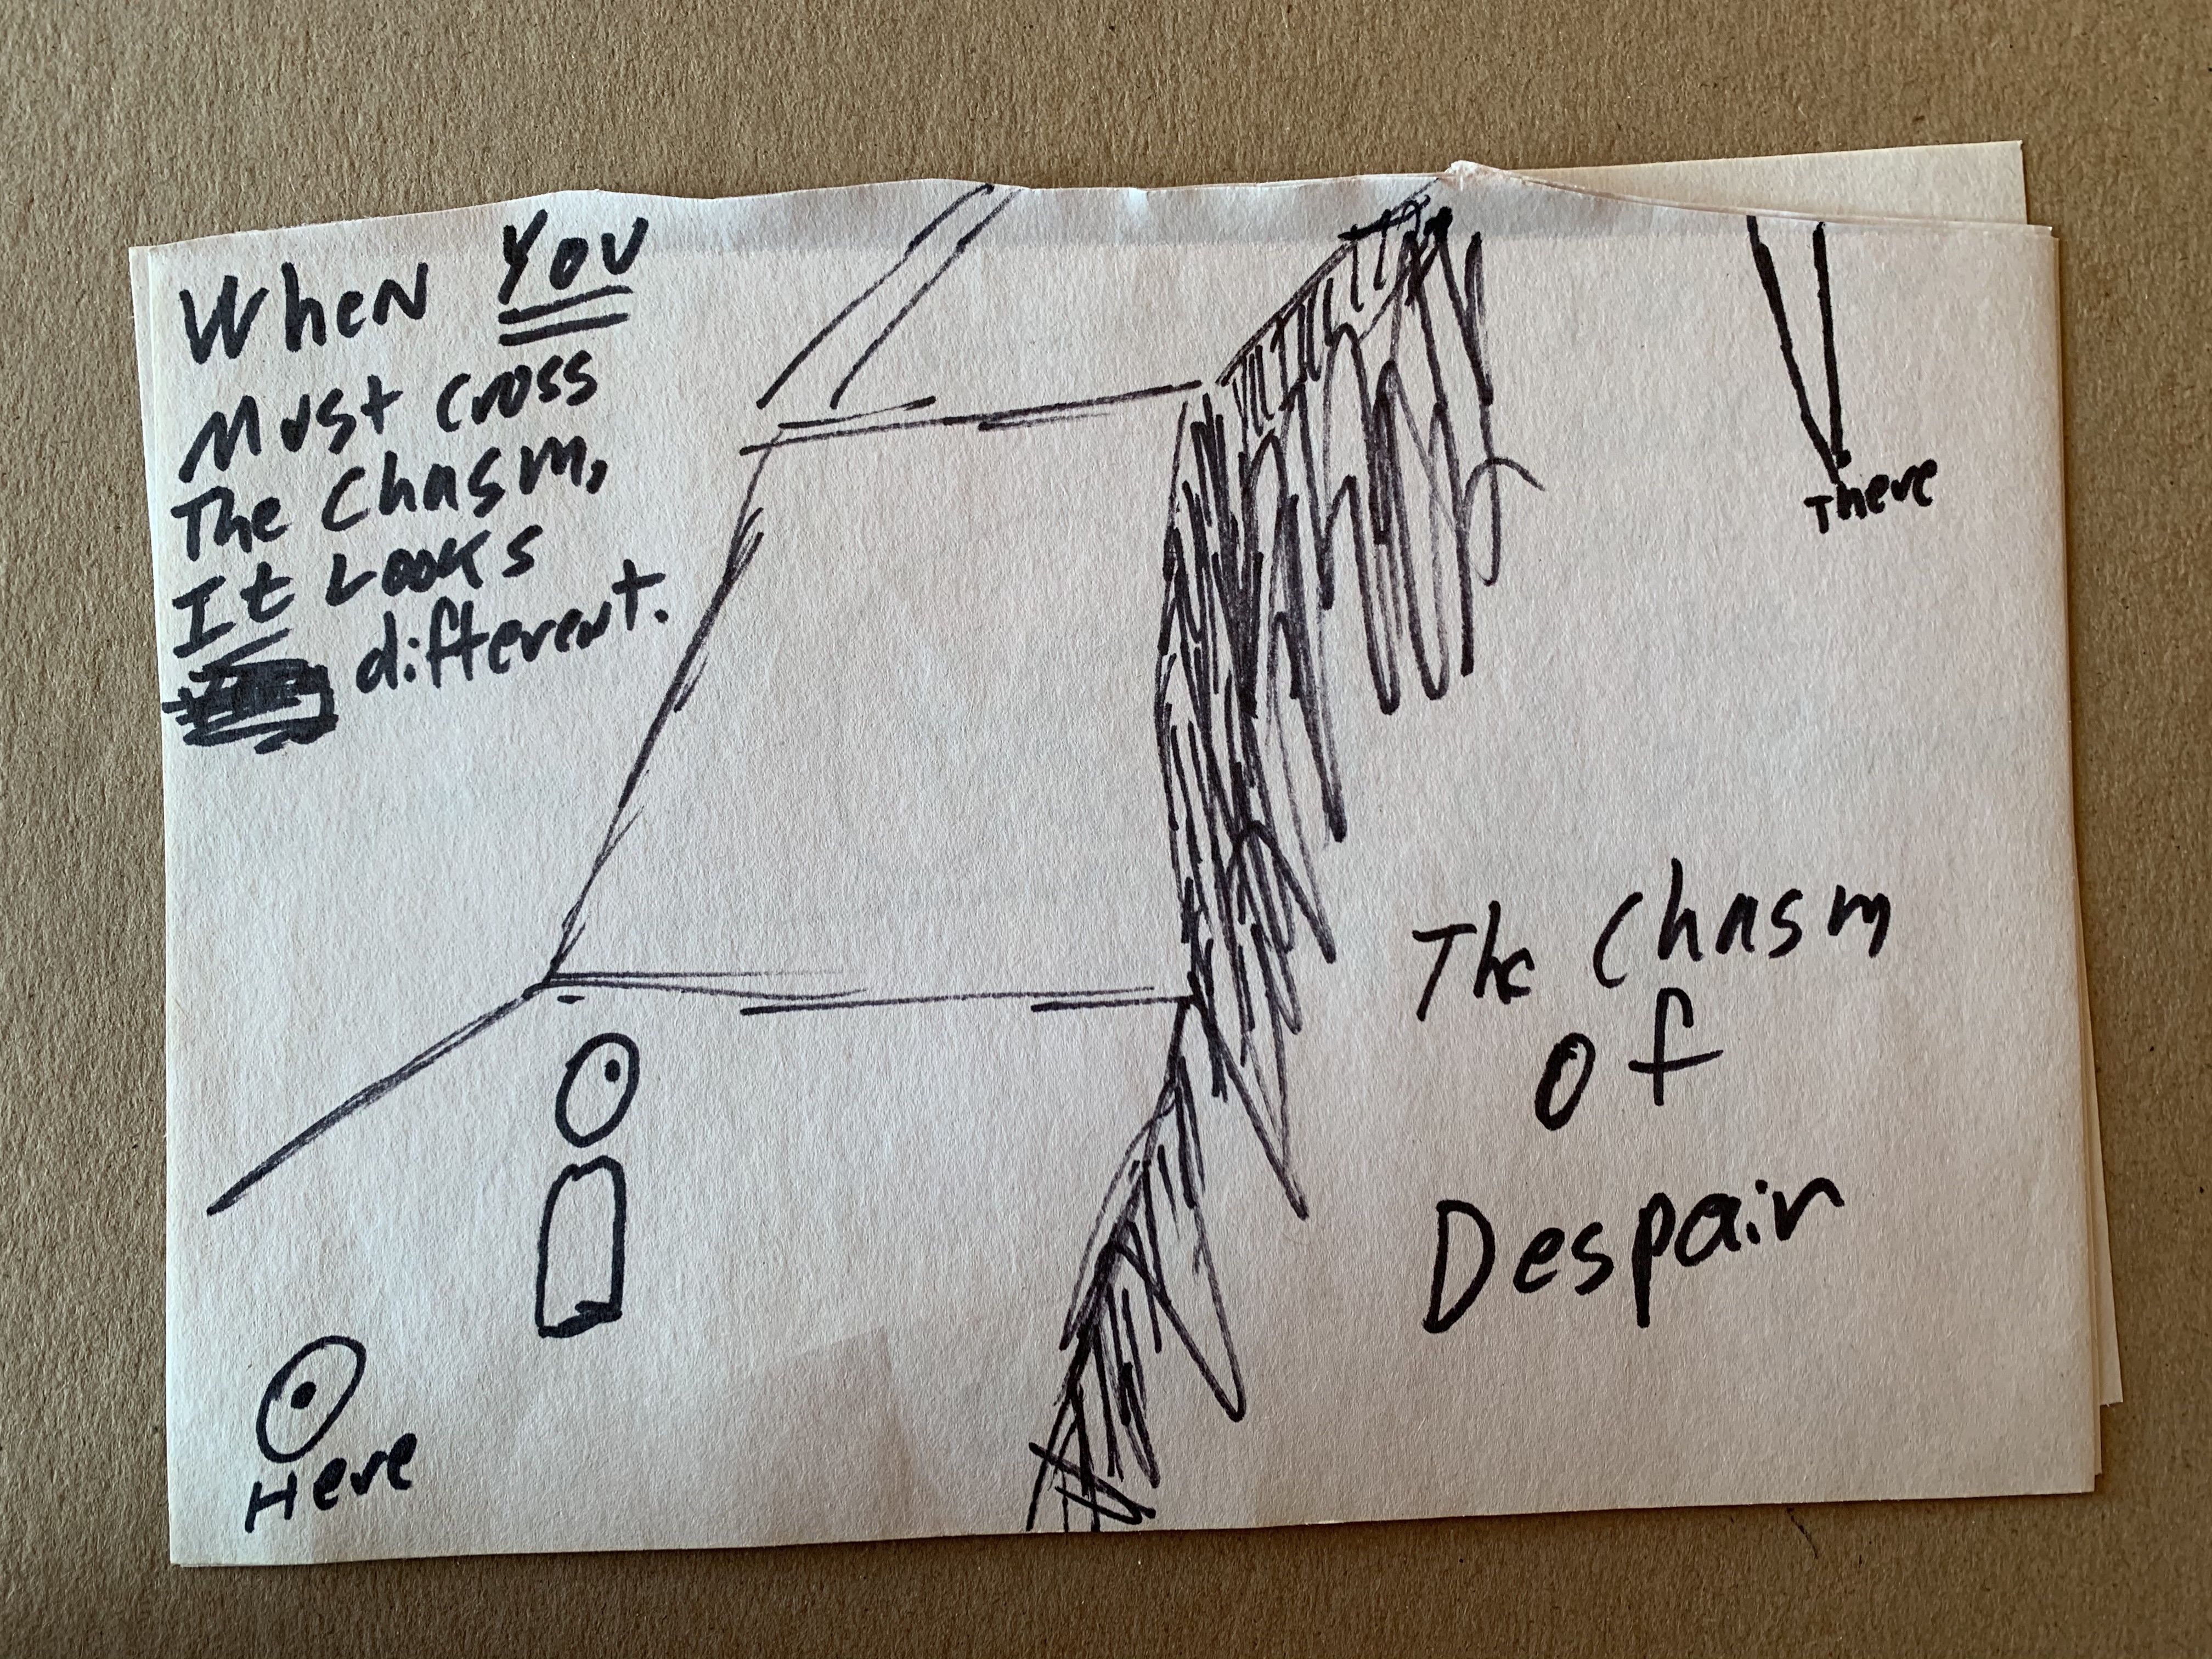 When You
Must Cross
The Chasm,
It Looks
different.
There
The Chasm
Of
Despair
Here